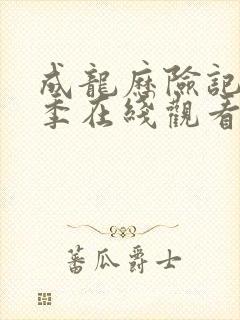 成龍歷險記
季在綫觀看
蕃瓜爵士